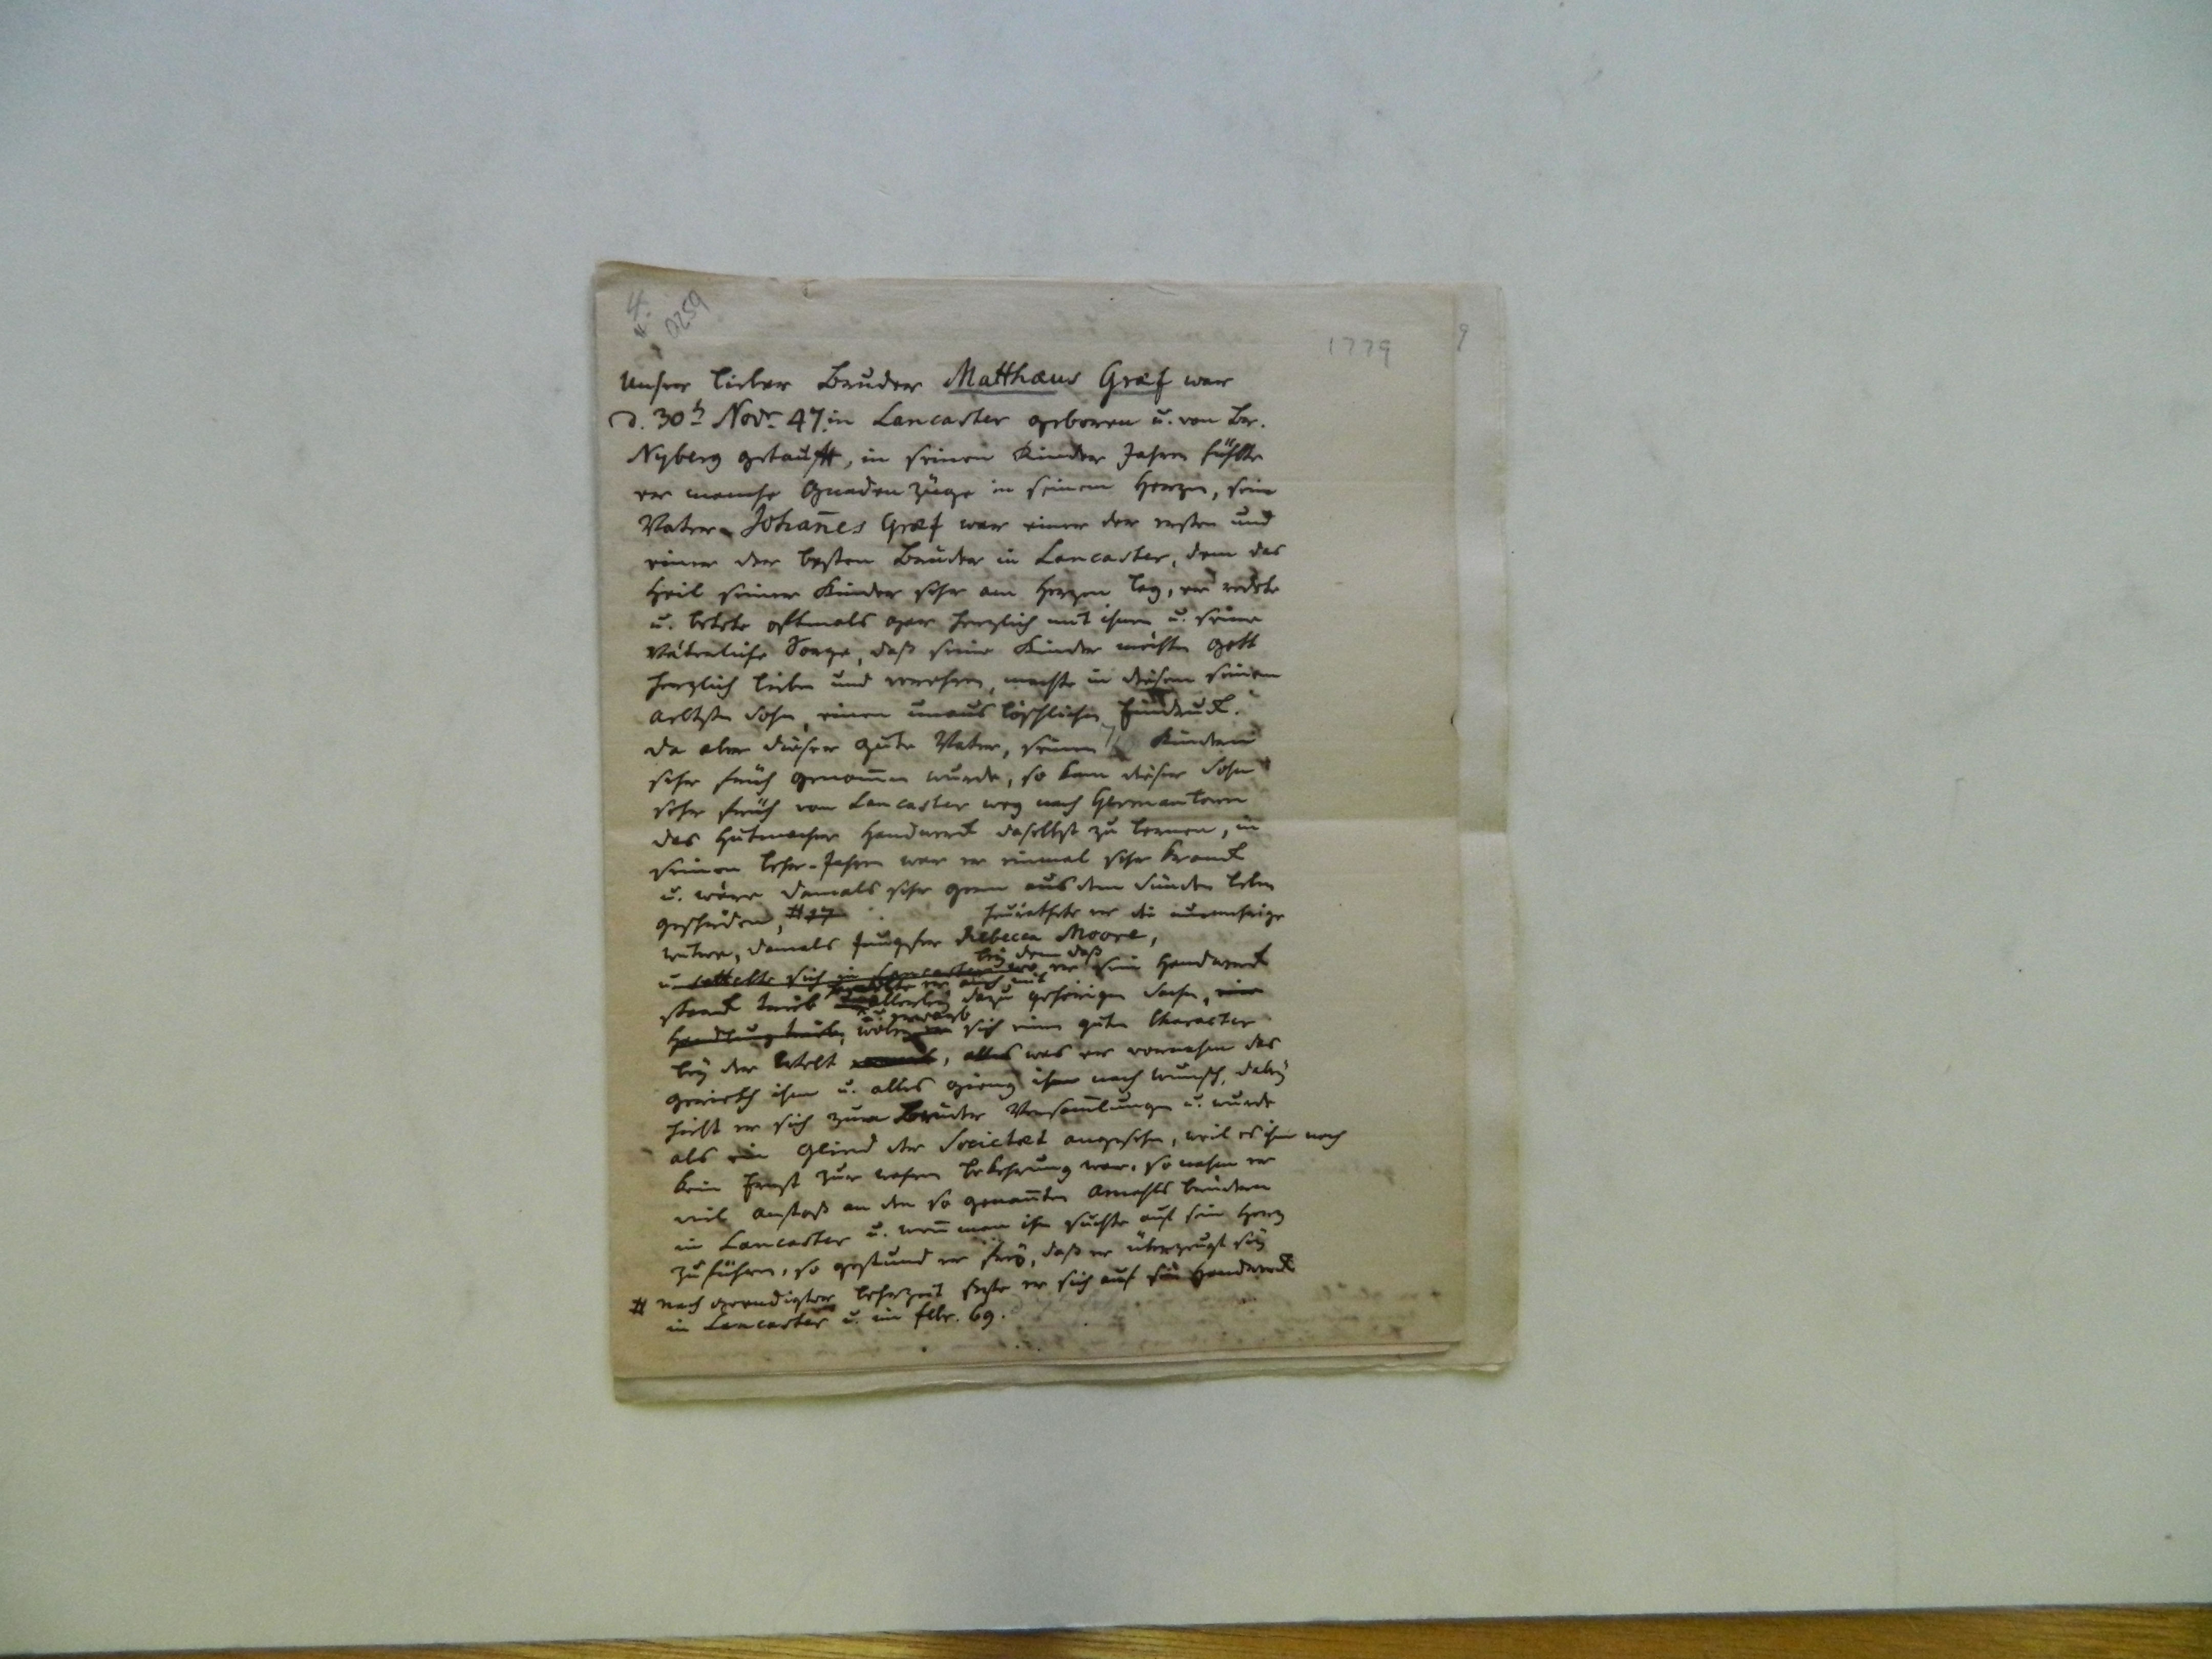 4.
0259
1779
9
Unser lieber Bruder Matthæus Græf war
d. 30t Novr 47. in Lancaster geboren u. von Br.
Nyberg getaufft, in seinen Kinder Jahren fühlte
er manche Gnaden Züge in seinem Herzen, sein
Vater Johañes Græf war einer der ersten und
einer der besten Brüder in Lancaster, dem das
Heil seiner Kinder sehr am Herzen lag, er redete
u. betete oftmals gar herzlich mit ihnen u. seine
Väterliche Sorge, daß seine Kinder möchten Gott
herzlich lieben und verehren, machte in diesem seinem
aeltsten Sohn, einen unauslöschlichen Eindruck.
da aber dieser gute Vater, seinen Kindern
sehr früh genom̄en wurde, so kam dieser Sohn
sehr früh von Lancaster weg nach Germantown
das Hutmacher Handwerck daselbst zu lernen, in
seinen Lehr-Jahren war er einmal sehr kranck
u. wäre damals sehr gern aus dem Sünden leben
geschieden, # heirathete er die nunmehrige
Witwe, damals Jungfer Rebecca Moore,
bey dem daß
u settelte sich in Lancaster wo er sein Handwerck
er auch mit
starck trieb allerley dazu gehörigen Sachen, eine
u. erwarb
Handlung trieb, wobey er sich einen guten Character
bey der Welt, alles was er vornahm das
gerieth ihm u. alles gieng ihm nach Wunsch, dabey
hielt er sich zur Brüder Versam̄lungen u. wurde
als ein Glied der Societæt angesehen, weil es ihm noch
kein Ernst zur wahren bekehrung war, so nahm er
viel anstoß an den so genan̄ten Abendmahls brüdern
in Lancaster u. wen̄ man ihn suchte auf sein Herz
zu führen, so gestund er frey, daß er überzeugt sey
# nach geendigter Lehrzeit sezte er sich auf sein Handwerck
in Lancaster u. im febr. 69.